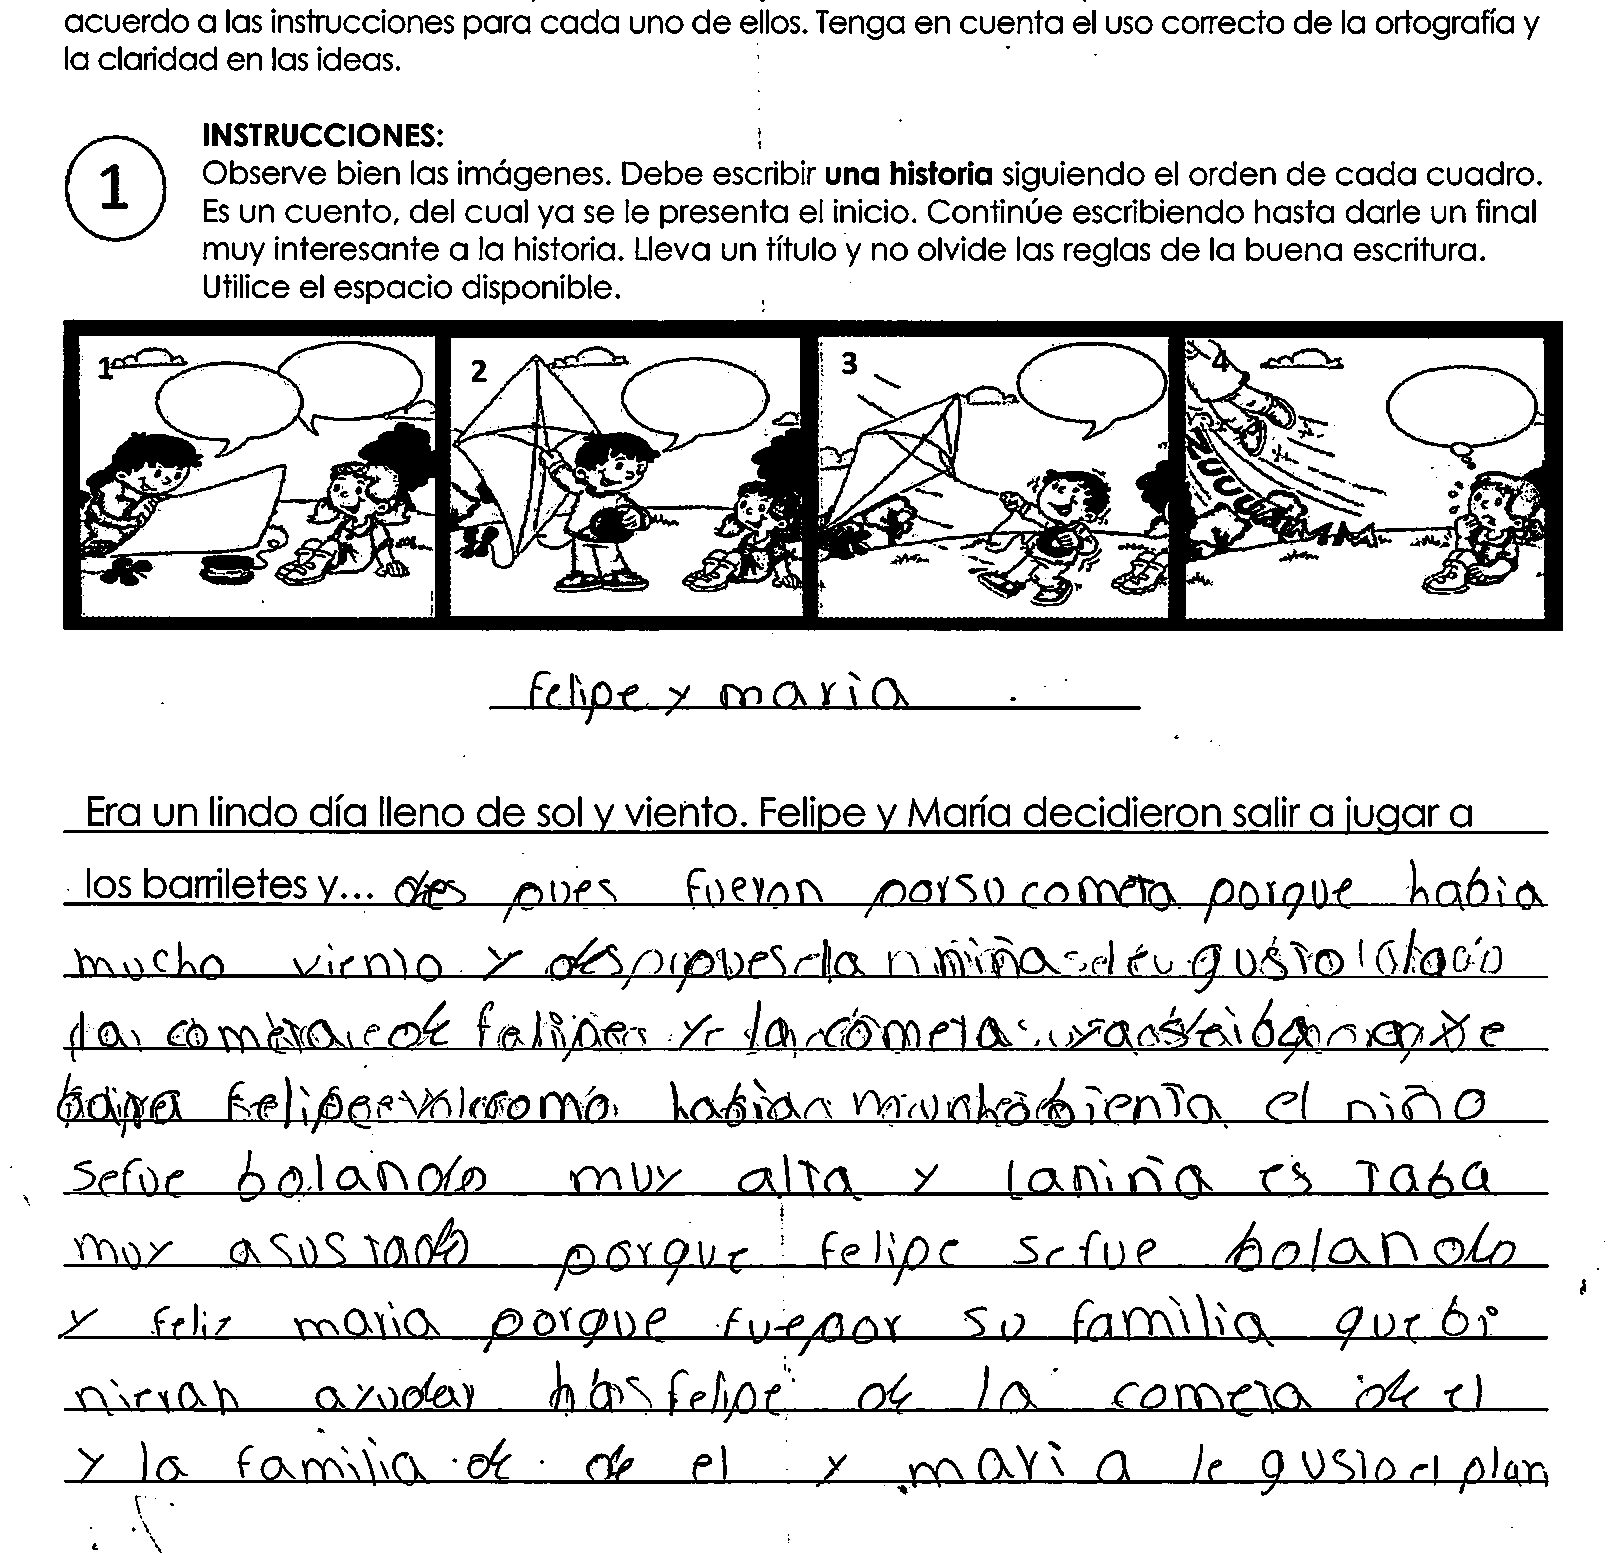 acuerdo a las instrucciones para cada uno de ellos. Tenga en cuenta el uso correcto de la ortografía y
la claridad en las ideas.
1
INSTRUCCIONES:
Observe bien las imágenes. Debe escribir una historia siguiendo el orden de cada cuadro.
Es un cuento, del cual ya se le presenta el inicio. Continúe escribiendo hasta darle un final
muy interesante a la historia. Lleva un título y no olvide las reglas de la buena escritura.
Utilice el espacio disponible.
1 2 3 4
felipe y maria
Era un lindo día lleno de sol y viento. Felipe y María decidieron salir a jugar a
los barriletes y... des pues fueron porsu cometa porque habia
mucho viento y la niña gusto
la cometa de felipe y la cometa
felipe como habia el niño
sefue bolando muy alta y laniña es taba
muy asustado porque felipe sefue bolando
y feliz maria porque fuepor su familia que bi
nieran ayudar felipe de la cometa de el
y la familia de de el y maria le gusto el plan